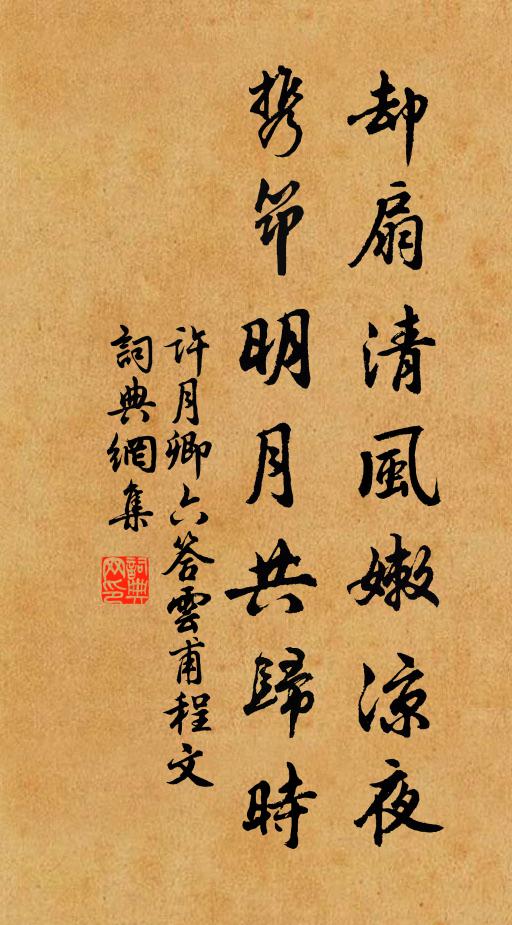 却扇清風嫩涼夜
携筇明月共歸時
許月卿六答雲甫程文
詞典網集
詞典網印